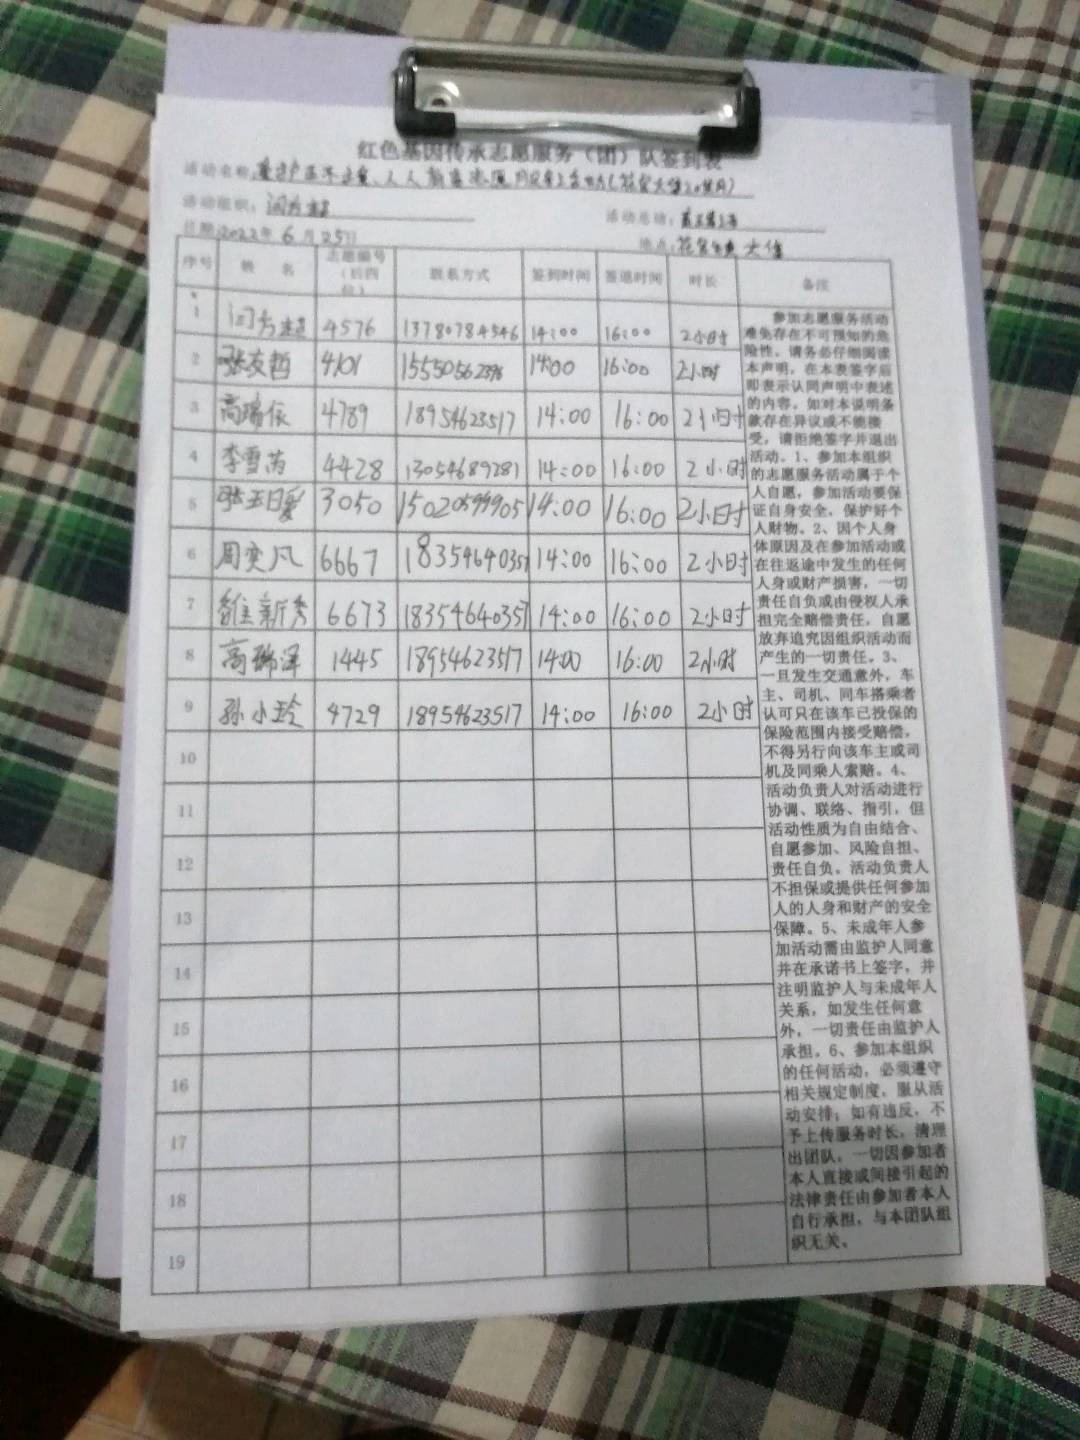 红色基因传承志愿服务(团)队签到表
活动名称:
活动组织:
活动总结:
日期:2022年6月25日
地点:
序号 姓名 志愿编号(后四位) 联系方式 签到时间 签退时间 时长 备注
1 4576 13780784546 14:00 16:00 2小时
2 张友哲 4101 14:00 16:00 2小时
3 高瑞依 4789 18954623517 14:00 16:00 2小时
4 李雪 4428 13054689281 14:00 16:00 2小时
5 张玉 3050 14:00 16:00 2小时
6 周奕凡 6667 1835464035 14:00 16:00 2小时
7 新秀 6673 1835464035 14:00 16:00 2小时
8 高瑞泽 1445 18954623517 14:00 16:00 2小时
9 孙小玲 4729 18954623517 14:00 16:00 2小时
10
11
12
13
14
15
16
17
18
19
参加志愿服务活动
难免存在不可预知的危
险性。请务必仔细阅读
本声明,在本表签字后
即表示认同声明中表述
的内容。如对本说明条
款存在异议或不能接
受,请拒绝签字并退出
活动。1、参加本组织
的志愿服务活动属于个
人自愿,参加活动要保
证自身安全,保护好个
人财物。2、因个人身
体原因及在参加活动或
在往返途中发生的任何
人身或财产损害,一切
责任自负或由侵权人承
担完全赔偿责任,自愿
放弃追究因组织活动而
产生的一切责任。3、
一旦发生交通意外,车
主、司机、同车搭乘者
认可只在该车已投保的
保险范围内接受赔偿,
不得另行向该车主或司
机及同乘人索赔。4、
活动负责人对活动进行
协调、联络、指引,但
活动性质为自由结合、
自愿参加、风险自担、
责任自负。活动负责人
不担保或提供任何参加
人的人身和财产的安全
保障。5、未成年人参
加活动需由监护人同意
并在承诺书上签字,并
注明监护人与未成年人
关系,如发生任何意
外,一切责任由监护人
承担。6、参加本组织
的任何活动,必须遵守
相关规定制度,服从活
动安排;如有违反,不
予上传服务时长,清理
出团队。一切因参加者
本人直接或间接引起的
法律责任由参加者本人
自行承担,与本团队组
织无关。